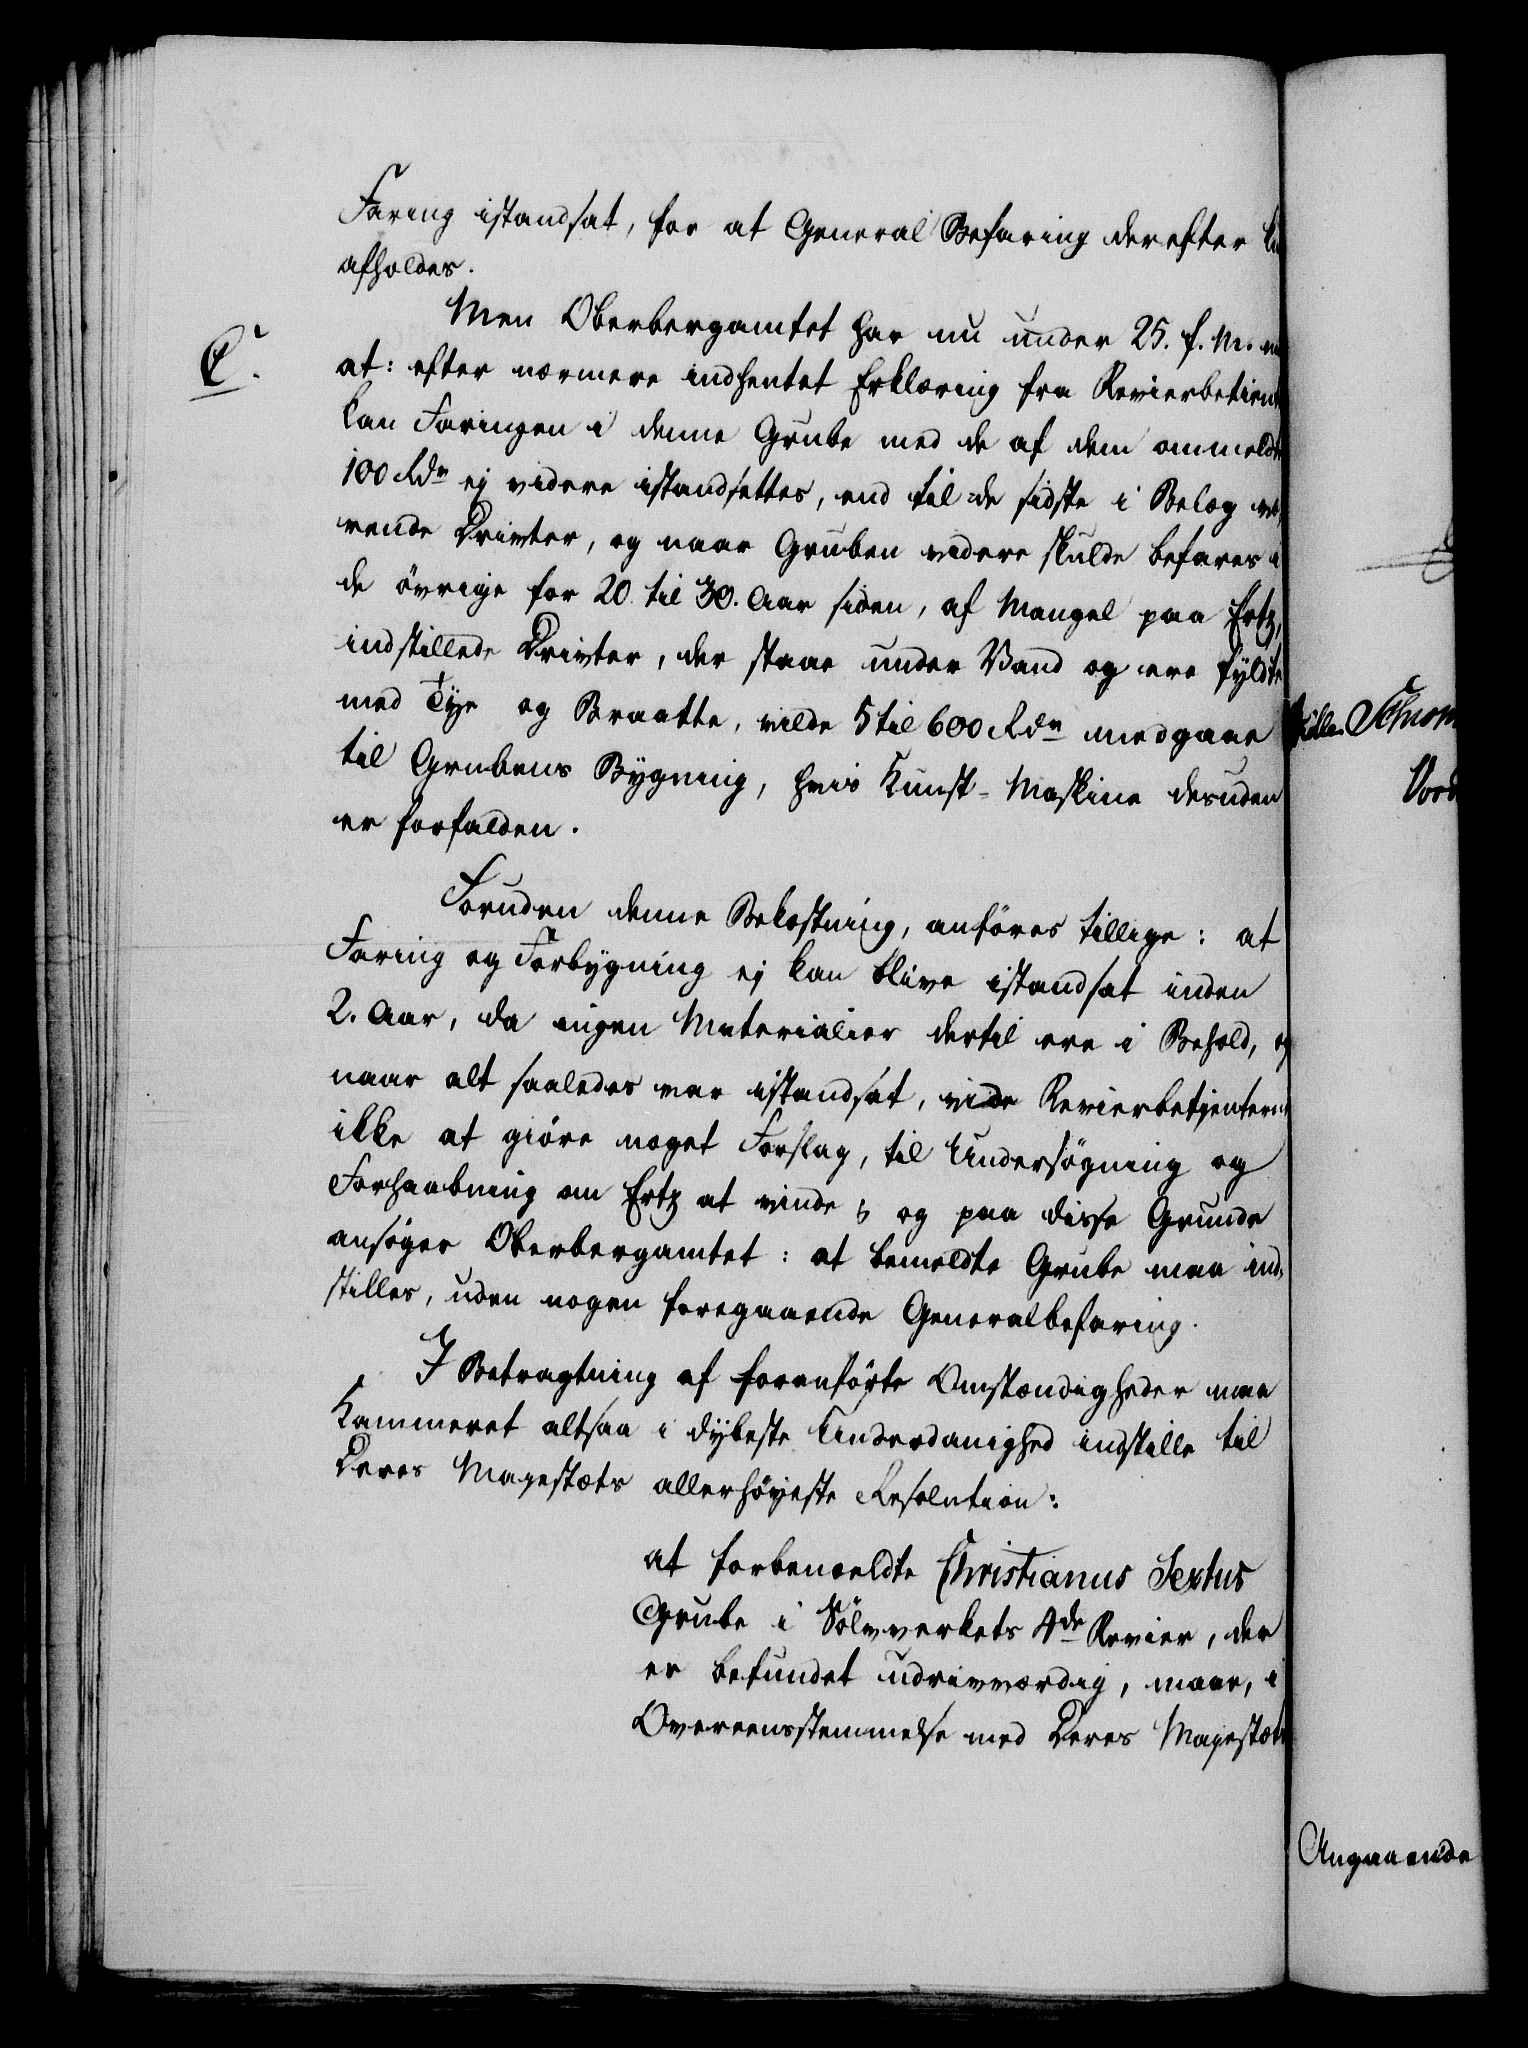 Faring istandsat, for at General Befaring derefter
afholdes.
Men Oberbergamtet har nu under 25. f. M.
C.
at: efter nærmere indhentet Erklæring fra Revierbetient
kan Faringen i denne Grube med de af dem ommeldte
100 Rdr ej videre istandsettes, end til de sidste i Belæg væ,
rende Drivter, og naar Gruben videre skulde befares i
de övrige for 20 til 30. Aar siden, af Mangel paa Ertz,
indstillede Drivter, der staae under Vand og ere fyldte
med Tye og Braatte, vilde 5 til 600 Rdr medgaae
til Grubens Bygning, hvis Kunst-Maskine desuden
er forfalden.
Foruden denne Bekostning, anföres tillige: at
Faring og Forbygning ej kan blive istandsat inden
2. Aar, da ingen Materialier dertil ere i Behold, og
naar alt saaledes var istandsat, vide Revierbetjenterne
ikke at giöre noget Forslag, til Undersögning og
Forhaabning om Ertz at vinde; og paa disse Grunde
ansöger Oberbergamtet: at bemeldte Grube maa ind,
stilles, uden nogen foregaaende Generalbefaring.
I Betragtning af foranförte Omstændigheder maa
Kammeret altsaa i dybeste Underdanighed indstille til
Deres Majestæts allerhöyeste Resolution:
at forbemeldte Christianus Sextus
Grube i Sölvverkets 4de Revier, der
er befundet udrivværdig, maae, i
Overeensstemmelse med Deres Majestæts
Vord
Angaaende